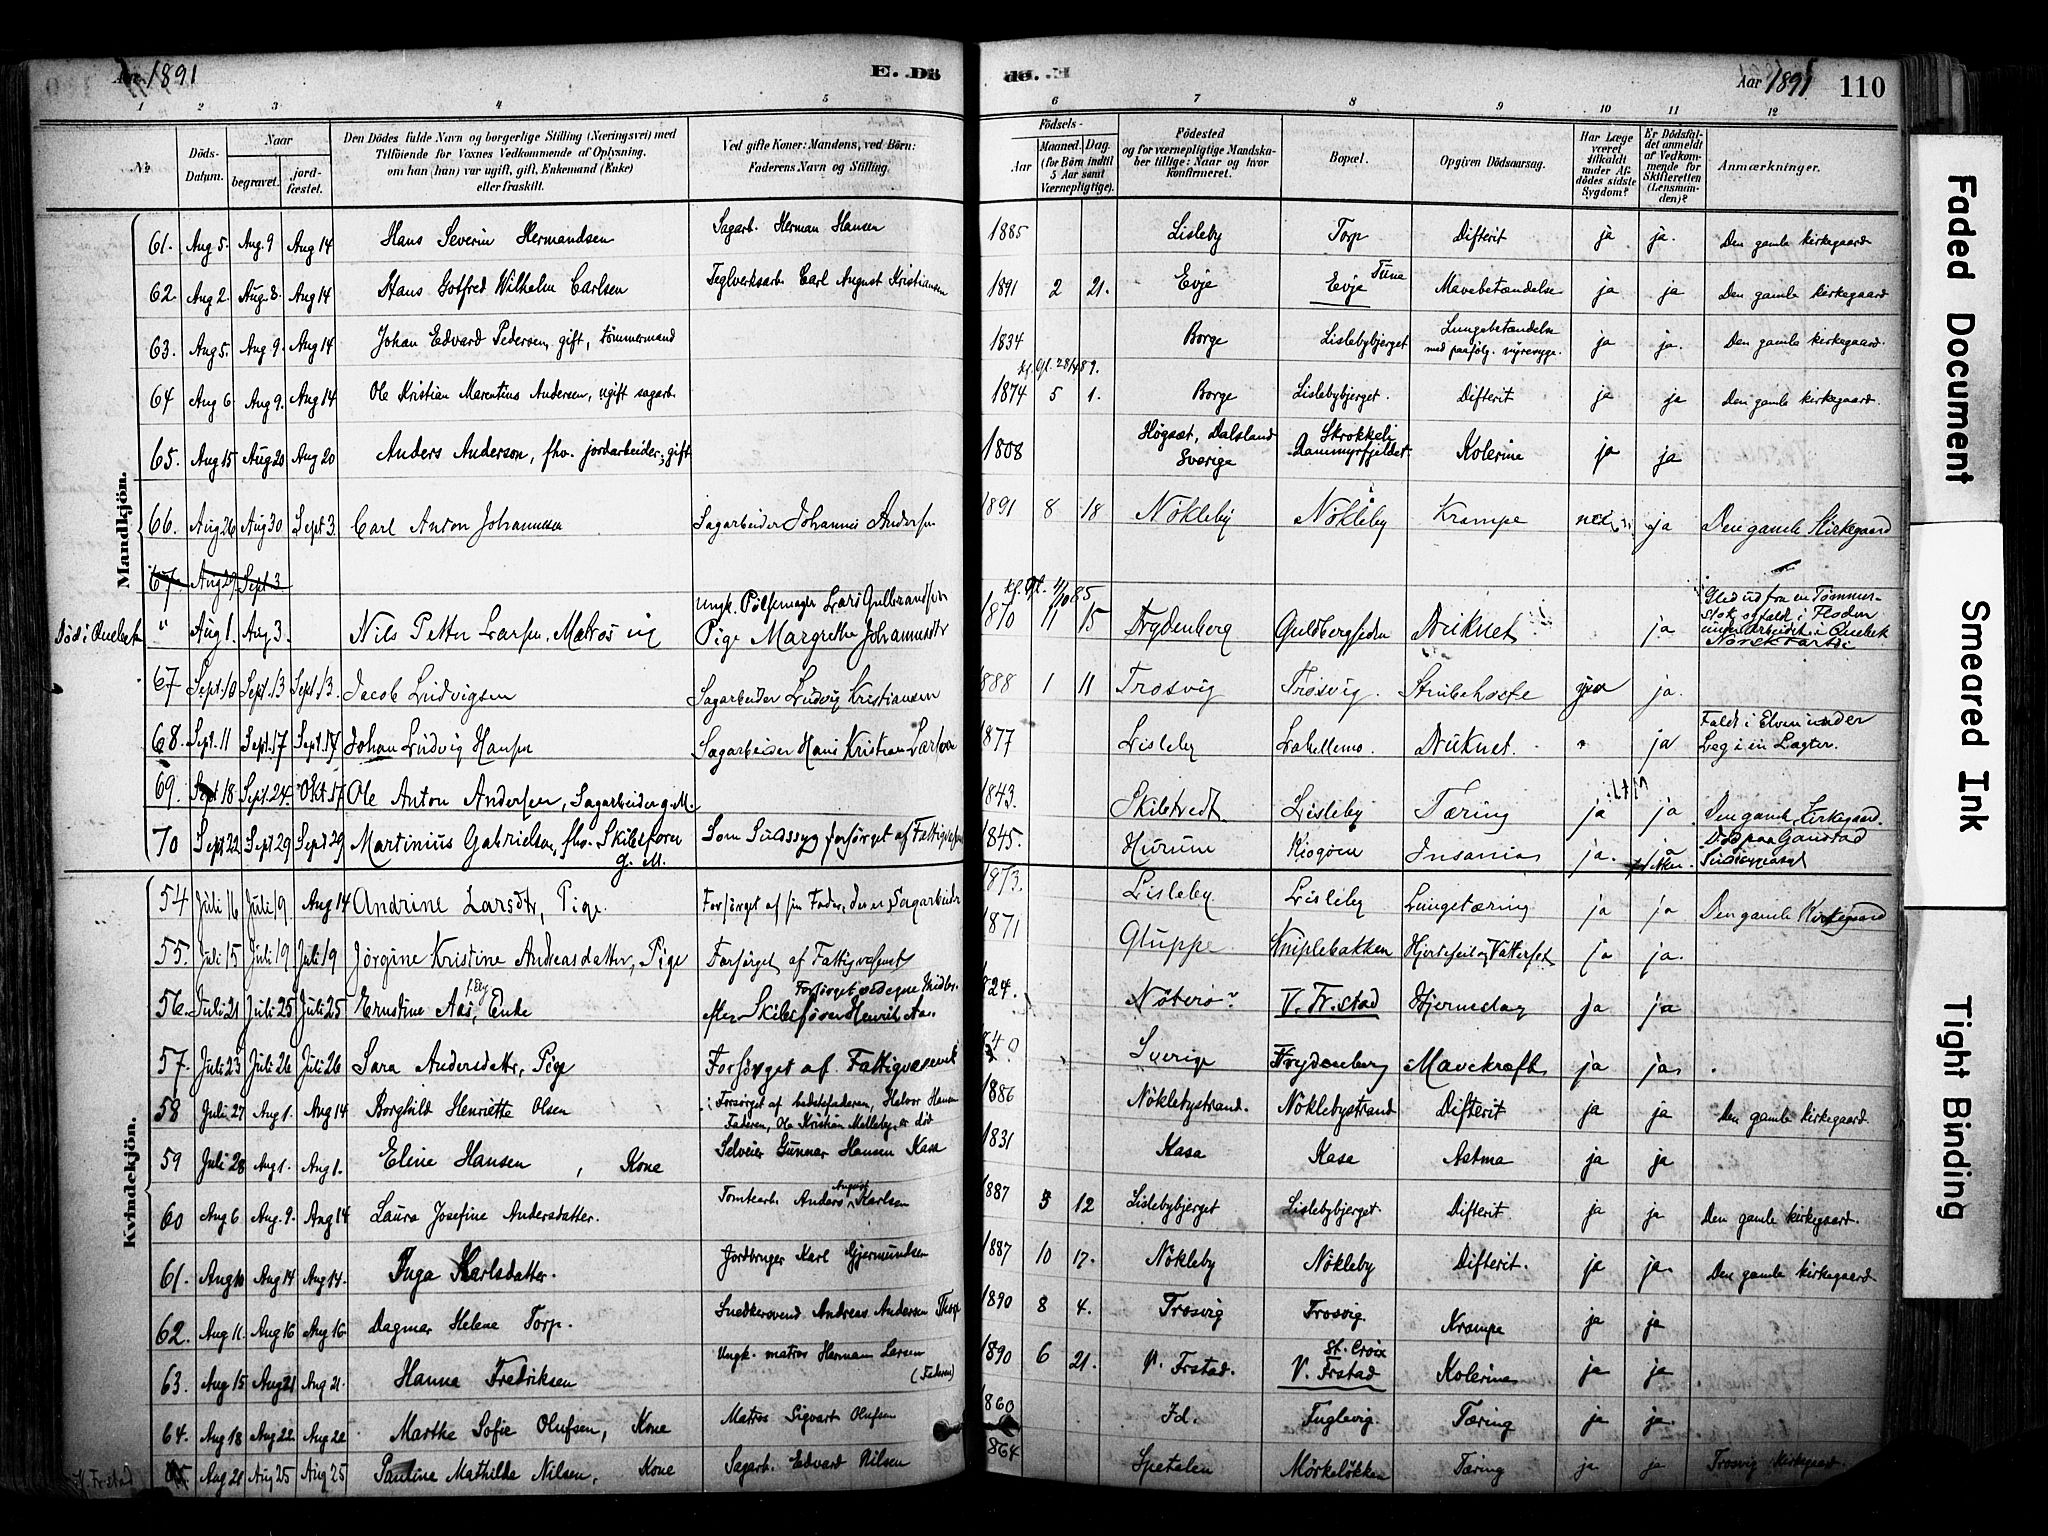 Aar 1891 E. Dö de. E. Aar 1891 110
1 2 3 4 5 6 7 8 9 10 11 12
No. Döds-Datum. Naar begravet. jord-fæstet. Den Dödes fulde Navn og borgerlige Stilling (Næringsvei) med Tilföiende for Voxnes Vedkommende af Oplysning, om han (hun) var ugift, gift, Enkemand (Enke) eller fraskilt. Ved gifte Koner: Mandens, ved Börn: Faderens Navn og Stilling. Födsels- Aar Maaned. Dag. (for Börn indtil 5 Aar samt Værnepligtige). Födested og for værnepligtige Mandska-ber tillige: Naar og hvor Konfirmeret. Bopæl. Opgiven Dödsaarsag. Har Læge været tilkaldt under Af-dödes sidste Sygdom? Er Dödsfal-det anmeldt af Vedkom-mende for Skifteretten (Lensman-den)? Anmærkninger.
Mandkjön.
61. Aug 5. Aug. 9 Aug 14 Hans Severin Hermandsen Sagarb. Herman Hansen 1885 Lisleby Torp Difterit ja ja. Den gamle kirkegaard
62. Aug 2. Aug 8. Aug 14 Hans Gotfred Wilhelm Carlsen Teglverksarb. Carl August Kristiansen 1891 2 21. Evje Evje Tune Mavebetændelse ja ja Den gamle kirkegaard
63. Aug 5. Aug 9. Aug 14 Johan Edvard Pedersen, gift, tömmermand 1834 Borge Lislebybjerget Lungebetændelse med paafölg. nyresyge. ja ja. Den gamle kirkegaard.
64 Aug 6. Aug 9. Aug 14 Ole Kristian Marentius Andersen, ugift sagarb. 1874 5 1. Borge Lislebybjerget. Difterit ja ja Den gamle kirkegaard.
65. Aug 15 Aug 20 Aug 20 Anders Anderson, fhv. jordarbeider, gift 1808 Högsæt, Dalsland Sverige Skrokkeli Dammyrfjeldet Kolerine ja ja
66. Aug 26 Aug 30 Sept. 3. Carl Anton Johannesen Sagarbeider Johannes Andersen 1891 8 18 Nökleby Nökleby Krampe nei ja Den gamle Kirkegaard
67. Aug 29 Sept 3
Död i Quebek " Aug 1. Aug 3. Nils Petter Larsen, Matros ug Ungk. Pölsemager Lars Gulbrandsen Pige Margrethe Johannesdtr 1870 11 15 Frydenberg Guldbergsiden Druknet ja Gled ud fra en Tømmer-stok og faldt i Floden under Arbeidet i Quebek
67 Sept. 10 Sept. 13 Sept. 13. Jacob Ludvigsen Sagarbeider Ludvig Kristiansen 1888 1 11 Trosvig Trosvig. Strubehoste ja ja.
68. Sept. 11 Sept. 17 Sept. 17 Johan Ludvig Hansen Sagarbeider Hans Kristian Larsen 1877 Lisleby Labellemo. Druknet. " ja Faldt i Elven under Leg i en Lægter.
69. Sept 18 Sept. 24. Okt. 17 Ole Anton Andersen, Sagarbeider g. M. 1843. Skiebstvedt Lisleby Tæring ja ja Den gamle Kirkegaard.
70 Sept 22 Sept 29 Sept 29 Martinius Gabrielsen, fhv. Skibsförer g. M. Som Sindssyg forsörget af Fattigvæsen 1845. Hurum Kjögöen Insania ja. ja Död paa Gaustad Sindssygeasyl
Kvindekjön.
54 Juli 16 Juli 19 Aug 14 Andrine Larsdtr, Pige Forsörget af sin Fader, der er Sagarbeider 1873. Lisleby Lisleby Lungetæring ja ja Den gamle Kirkegaard
55. Juli 15 Juli 19 Juli 19 Jörgine Kristine Andreasdatter, Pige Forsörget af Fattigvæsenet 1871 Gluppe Kniplebakken Hjertefeil og Vattersot ja ja.
56. Juli 21 Juli 25 Juli 25 Ernstine Aas, Enke Forsörget ved egne Midler. efter Skibsförer Henrik Aas 1824. Nöterö V. Fr.stad Hjerneslag ja ja
57. Juli 23 Juli 26 Juli 26 Sara Andersdattr, Pige Forsörget af Fattigvæsenet 1840 Sverige Frydenberg Mavekræft ja ja.
58 Juli 27 Aug 1. Aug 14 Borghild Henriette Olsen Forsörget af bedstefaderen, Halvor Hansen Faderen, Ole Kristian Melleby, er död 1886 Nöklebystrand. Nöklebystrand Difterit ja ja Den gamle kirkegaard.
59 Juli 28 Aug 1. Aug 1. Eline Hansen, Kone Selveier Gunnar Hansen Kasa 1831 Kasa Kasa Astma ja ja
60 Aug 6 Aug. 9. Aug 14 Laura Josefine Andersdatter. Tomtearb. Anders August Karlsen 1887 3 12 Lislebybjerget Lislebybjerget. Difterit. ja ja Den gamle kirkegaard.
61. Aug 10 Aug 14 Aug 14. Inga Karlsdatter. Jordbruger Karl Gjermundsen 1887 10 17. Nökleby Nökleby Difterit. ja ja. Den gamle kirkegaard
62. Aug 11. Aug 16 Aug 16. Dagmar Helene Torp. Snedkersvend Andreas Andersen Thorp 1890 8 4. Trosvig Trosvig. Krampe ja ja
63. Aug 15 Aug 21 Aug 21. Hanna Fredriksen Ungk. matros Herman Larsen (Faderen) 1890 6 21. V. Frstad. St. Croix V. Frstad Kolerine ja ja
64. Aug 18 Aug 22. Aug 22 Marthe Sofie Olufsen, Kone Matros Sigvart Olufsen 1860 Id. Fuglevig. Tæring ja ja.
V. Frstad 65. Aug 21 Aug 25 Aug 25 Pauline Mathilde Nilsen, Kone Sagarb. Edvard Nilsen 1864 Spetalen Mörkelökken Tæring ja ja Trosvig Kirkegaard.
Faded Document
Smeared Ink
Tight Binding